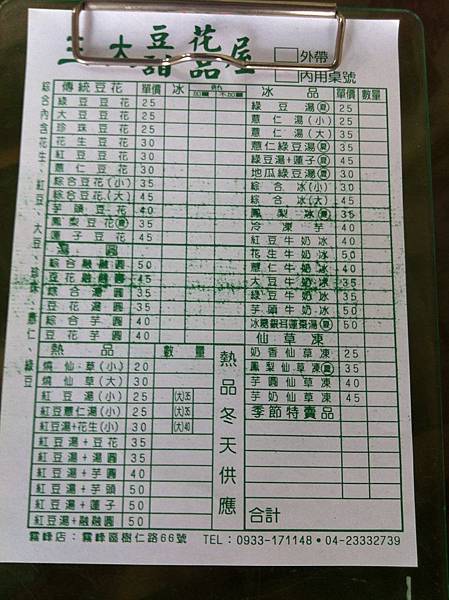 三.大 豆花甜品屋
□外帶
□內用桌號
綜合內含花生、紅豆、大豆、珍珠、薏仁、綠豆
傳統豆花 單價 冰 熱
綠豆豆花 25
大豆豆花 25
珍珠豆花 25
花生豆花 30
紅豆豆花 30
薏仁豆花 30
綜合豆花(小) 35
綜合豆花(大) 45
芋頭豆花 40
鳳梨豆花(夏) 35
蓮子豆花 45
湯圓
綜合融融圓 50
豆花融融圓 45
綜合湯圓 35
豆花湯圓 35
綜合芋圓 40
豆花芋圓 40
熱品 數量
燒仙草(小) 20
燒仙草(大) 30
紅豆湯(小) 25 (大)35
紅豆薏仁湯(小) 25 (大)35
紅豆湯+花生(小) 30 (大)40
紅豆湯+豆花 35
紅豆湯+湯圓 35
紅豆湯+芋圓 40
紅豆湯+芋頭 50
紅豆湯+蓮子 50
紅豆湯+融融圓 50
熱品冬天供應
冰品 單價 數量
綠豆湯(夏) 25
薏仁湯(小) 25
薏仁湯(大) 35
薏仁綠豆湯(夏) 35
綠豆湯+蓮子(夏) 45
地瓜綠豆湯(夏) 30
綜合冰(小) 30
綜合冰(大) 45
鳳梨冰(夏) 35
冷凍芋 45
紅豆牛奶冰 40
花生牛奶冰 50
薏仁牛奶冰 40
大豆牛奶冰 35
綠豆牛奶冰 35
芋頭牛奶冰 50
冰糖銀耳蓮棗湯(夏) 50
仙草凍
奶香仙草凍 25
鳳梨仙草凍(夏) 35
芋圓仙草凍 40
芋奶仙草凍 45
季節特賣品
合計
霧峰店：霧峰區樹仁路66號 TEL：0933-171148・04-23332739